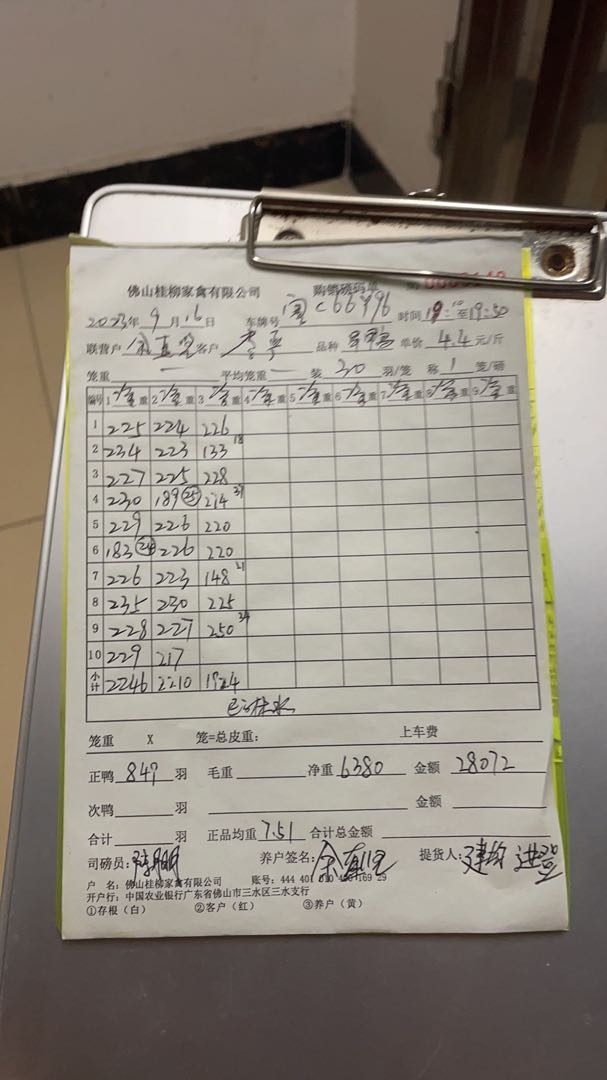 佛山桂柳家禽有限公司 购销磅码单
2023年 9 月 16 日 车牌号 C66996 时间 19:10 至 19:50
联营户 余真 客户 李 品种 单价 4.4 元/斤
笼重 一 平均笼重 一 装 30 羽/笼 称 1 笼/磅
编号 1 重 2 重 3 重 4 重 5 重 6 重 7 重 8 重 9 重
1 225 224 226
2 234 223 133 18
3 227 225 228
4 230 189 25 274 37
5 229 226 220
6 183 24 226 220
7 226 223 148 21
8 235 230 225
9 228 227 250 34
10 229 217
小计 2246 2210 1924
笼重 X 笼=总皮重: 上车费
正鸭 849 羽 毛重 净重 6380 金额 28072
次鸭 羽 金额
合计 羽 正品均重 7.51 合计总金额
司磅员: 养户签名: 提货人:
户 名: 佛山桂柳家禽有限公司 账号: 444 401 169 29
开户行: 中国农业银行广东省佛山市三水区三水支行
①存根（白） ②客户（红） ③养户（黄）